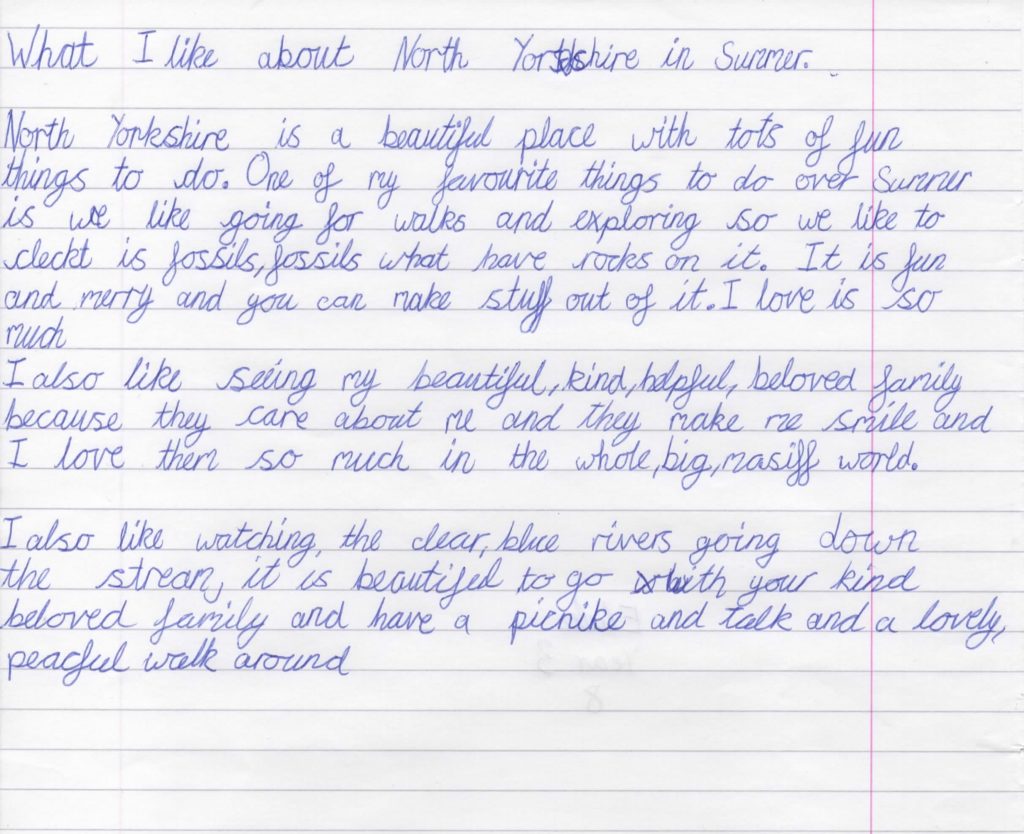 What I like about North Yorkshire in Summer.
North Yorkshire is a beautiful place with tots of fun
things to do. One of my favourite things to do over Summer
is we like going for walks and exploring so we like to
cleckt is fossils, fossils what have rocks on it. It is fun
and merry and you can make stuff out of it. I love is so
much
I also like seeing my beautiful, kind, helpful, beloved family
because they care about me and they make me smile and
I love them so much in the whole, big, masiff world.
I also like watching, the clear, blue rivers going down
the stream, it is beautifel to go with your kind
beloved family and have a picnike and talk and a lovely,
peacful walk around